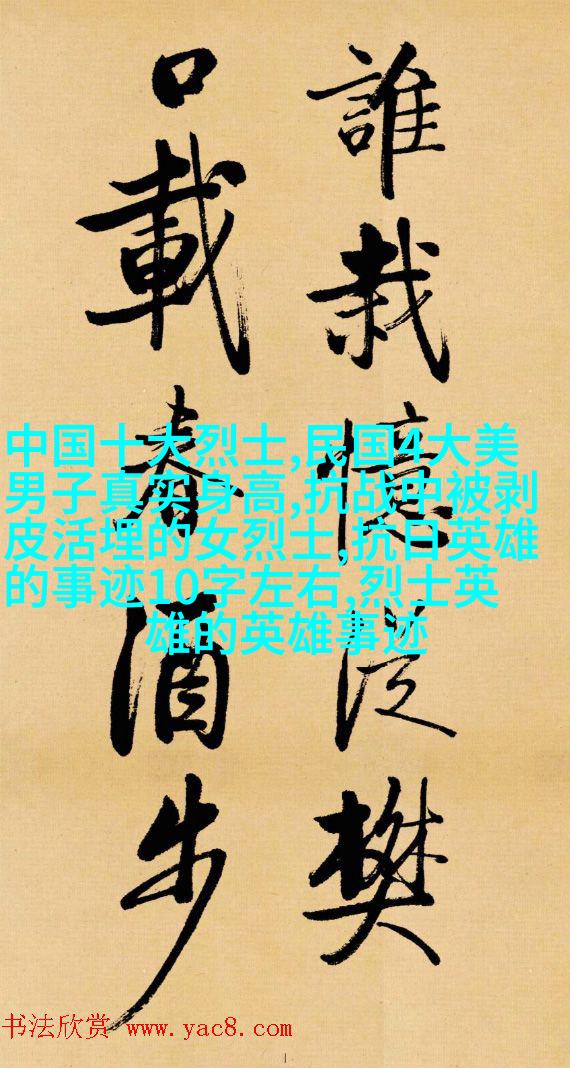 誰栽憶泛樊
口載春酒步
中国十大烈士,民国4大美
男子真实身高,抗战中被剥
皮活埋的女烈士,抗日英雄
的事迹10字左右,烈士英
雄的英雄事迹
书法欣赏 www.yac8.com